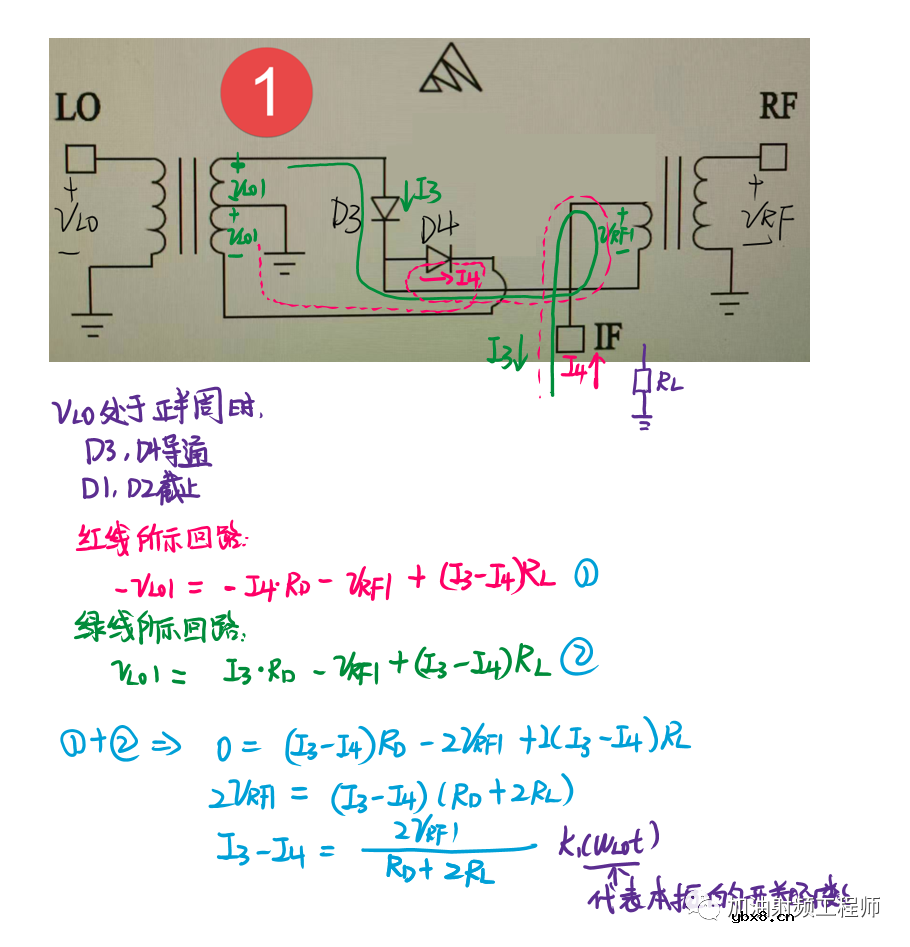 1
LO
RF
+
VLO
−
+
VLO1
+
VLO1
−
D3
I3
D4
I4
+
VRF1
−
+
VRF
−
I3
I4
IF
RL
VLO处于正半周时,
D3,D4导通
D1,D2截止
红线所示回路:
-VLO1 = -I4·RD - VRF1 + (I3-I4)RL ①
绿线所示回路:
VLO1 = I3·RD - VRF1 + (I3-I4)RL ②
①+② ⇒ 0 = (I3-I4)RD - 2VRF1 + 2(I3-I4)RL
2VRF1 = (I3-I4)(RD+2RL)
I3-I4 = 2VRF1 / (RD+2RL) K1(ωLOt)
代表本振的开关
加油射频工程师
ybx8.cn